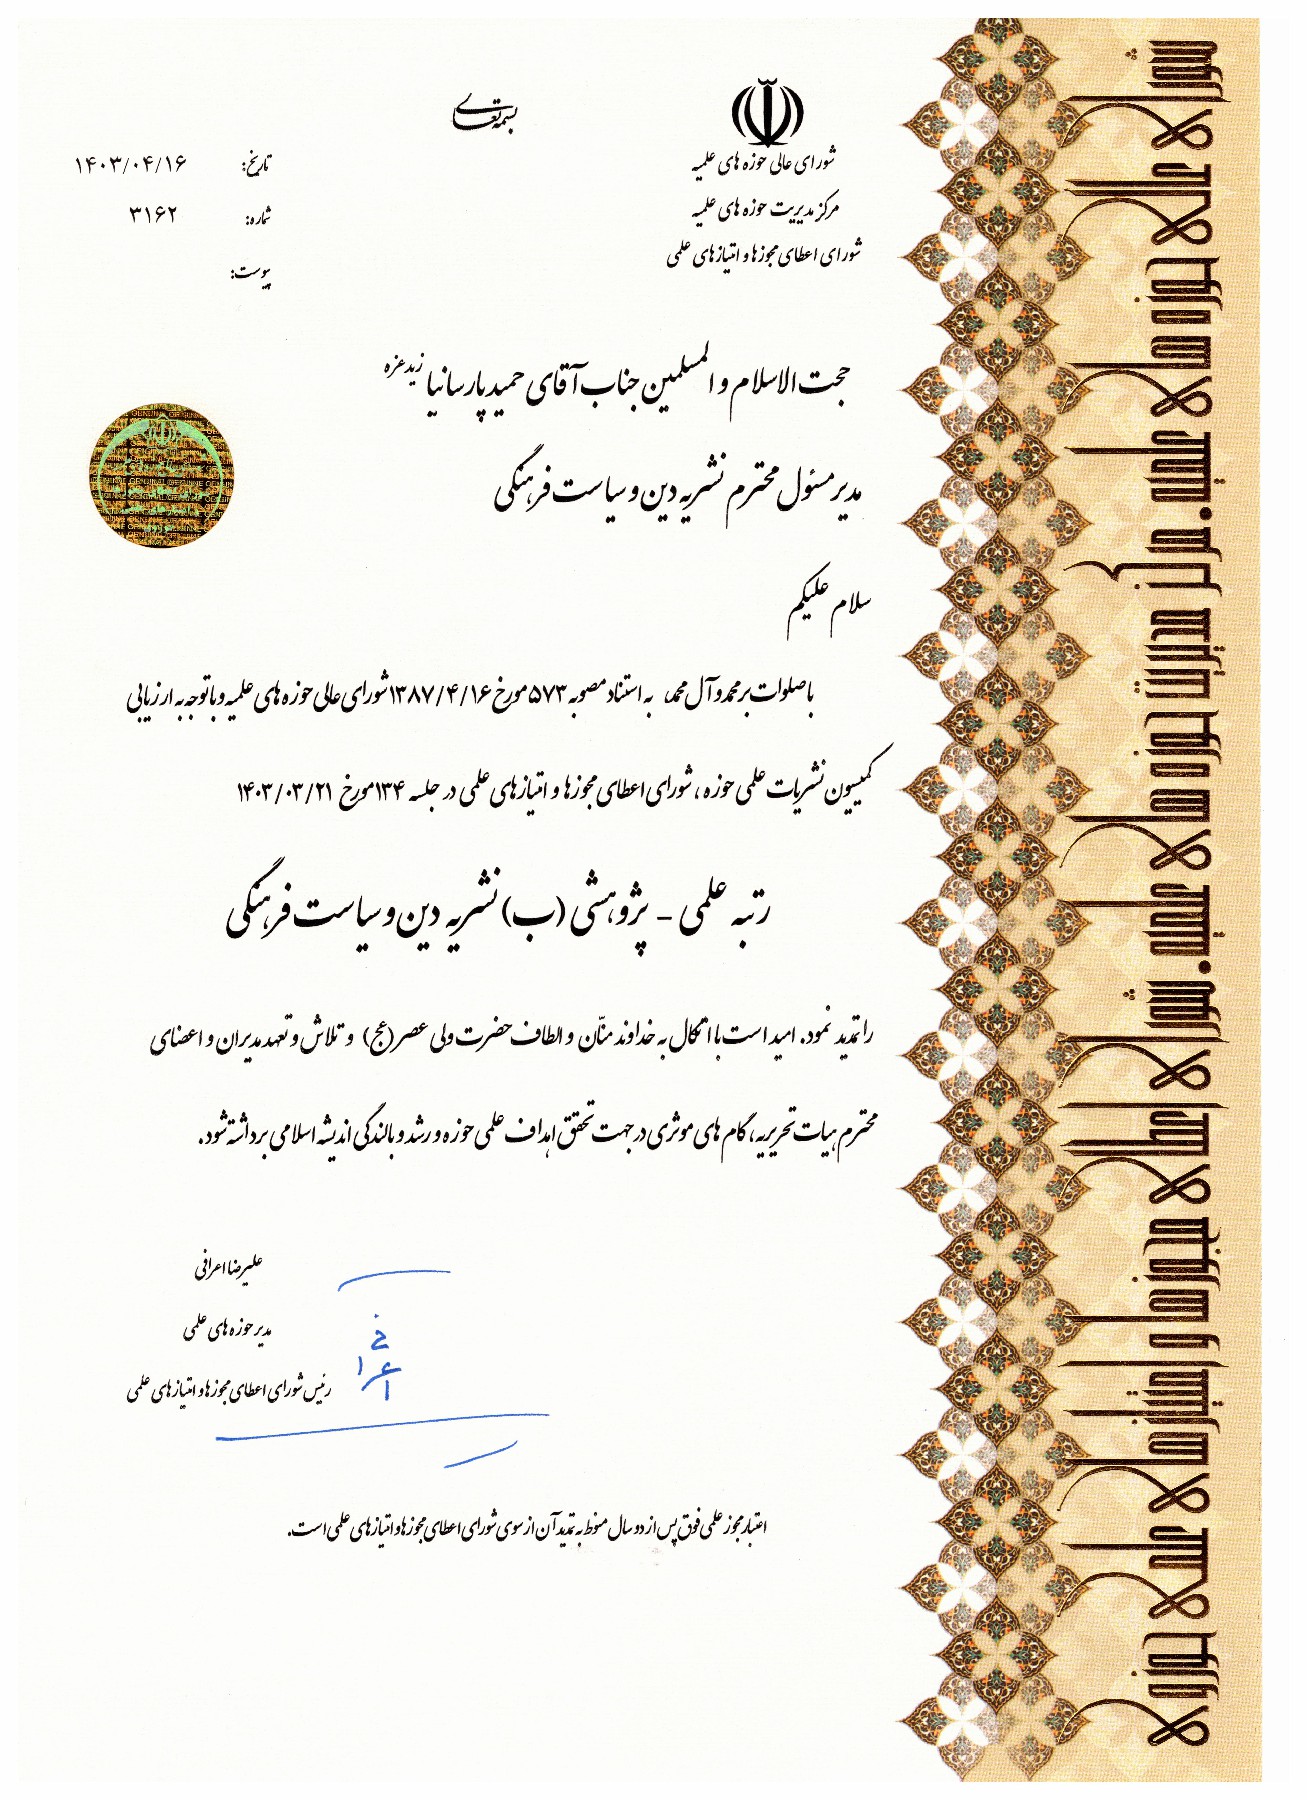 بسمه تعالی
شورای عالی حوزه های علمیه
مرکز مدیریت حوزه های علمیه
شورای اعطای مجوزها و امتیازهای علمی
تاریخ: ۱۴۰۳/۰۴/۱۶
شماره: ۳۱۶۲
پیوست:
حجت الاسلام و المسلمین جناب آقای حمید پارسانیا زید عزه
مدیر مسئول محترم نشریه دین و سیاست فرهنگی
سلام علیکم
با صلوات بر محمد و آل محمد به استناد مصوبه ۵۷۳ مورخ ۱۳۸۷/۴/۱۶ شورای عالی حوزه های علمیه و با توجه به ارزیابی
کمیسیون نشریات علمی حوزه، شورای اعطای مجوزها و امتیازهای علمی در جلسه ۱۳۴ مورخ ۱۴۰۳/۰۳/۲۱
رتبه علمی - پژوهشی (ب) نشریه دین و سیاست فرهنگی
را تمدید نمود. امید است با اتکال به خداوند منّان و الطاف حضرت ولی عصر (عج) و تلاش و تعهد مدیران و اعضای
محترم هیات تحریریه، گام های موثری در جهت تحقق اهداف علمی حوزه و رشد و بالندگی اندیشه اسلامی برداشته شود.
علیرضا اعرافی
مدیر حوزه های علمی
رئیس شورای اعطای مجوزها و امتیازهای علمی
اعتبار مجوز علمی فوق پس از دو سال منوط به تمدید آن از سوی شورای اعطای مجوزها و امتیازهای علمی است.
شورای عالی حوزه های علمیه. مرکز مدیریت حوزه های علمیه. شورای اعطای مجوزها و امتیازهای علمی حوزوی